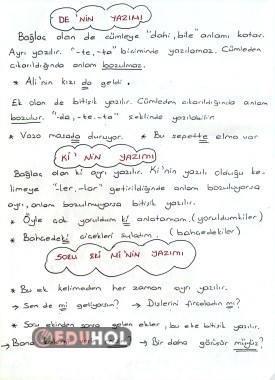 DE 'NİN YAZIMI
Bağlaç olan de cümleye "dahi, bile" anlamı katar.
Ayrı yazılır. "-te, -ta" biçiminde yazılamaz. Cümleden
çıkarıldığında anlam bozulmaz.
* Ali'nin kızı da geldi.
Ek olan de bitişik yazılır. Cümleden çıkarıldığında anlam
bozulur. "-da, -te, -ta" şeklinde yazılabilir.
* Vazo masada duruyor. * Bu sepette elma var
Kİ' NİN YAZIMI
Bağlaç olan ki ayrı yazılır. Ki'nin yazılı olduğu ke-
limeye "-ler, -lar" getirildiğinde anlam bozuluyorsa
ayrı, anlam bozulmuyorsa bitişik yazılır.
* Öyle çok yoruldum ki anlatamam. (yoruldumkiler)
* Bahçedeki çiçekleri suladım. (bahçedekiler)
SORU EKİ Mİ'NİN YAZIMI
* Bu ek kelimeden her zaman ayrı yazılır.
→ Sen de mi geliyorsun? → Dişlerini fırçaladın mı?
* Soru ekinden sonra gelen ekler, bu eke bitişik yazılır.
→ Bana → Bir daha görüşür müyüz?
EDUHOL